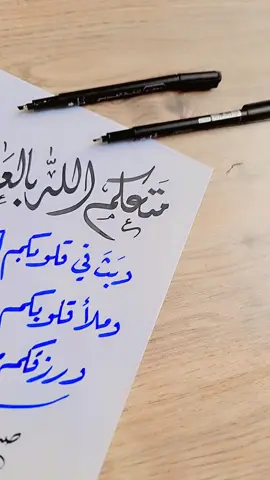 متعكم الله بالعا
وبث في قلوبكم
وملأ قلوبكم
ورزقكم